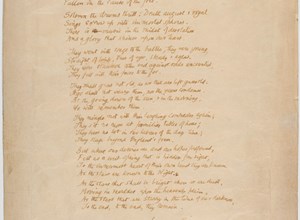 the drums thrill; Death august & royal
Sings sorrow up into immortal spheres.
There is in the midst of desolation
And a glory that shines upon our tears.
They went with songs to the battle, they were young,
Straight of limb, true of eye, steady & aglow,
They were to the end against odds uncounted,
They fell with their faces to the foe.
They grow not old, as we that are left grow old:
Age shall not weary them, nor the years condemn
At the going down of the sun & in the morning
We will remember them.
They mingle not with their laughing comrades again;
They sit no more at familiar tables of home;
They have no lot in our labour of the day-time;
They sleep beyond England's foam.
But where our desires are and our hopes profound,
Felt as a well-spring that is hidden from sight,
To the innermost heart of their own land they are known
As the stars are known to the Night;
As the stars that shall be bright when we are dust,
Moving in marches upon the heavenly plain,
As the stars that are starry in the time of our darkness,
To the end, to the end, they remain.